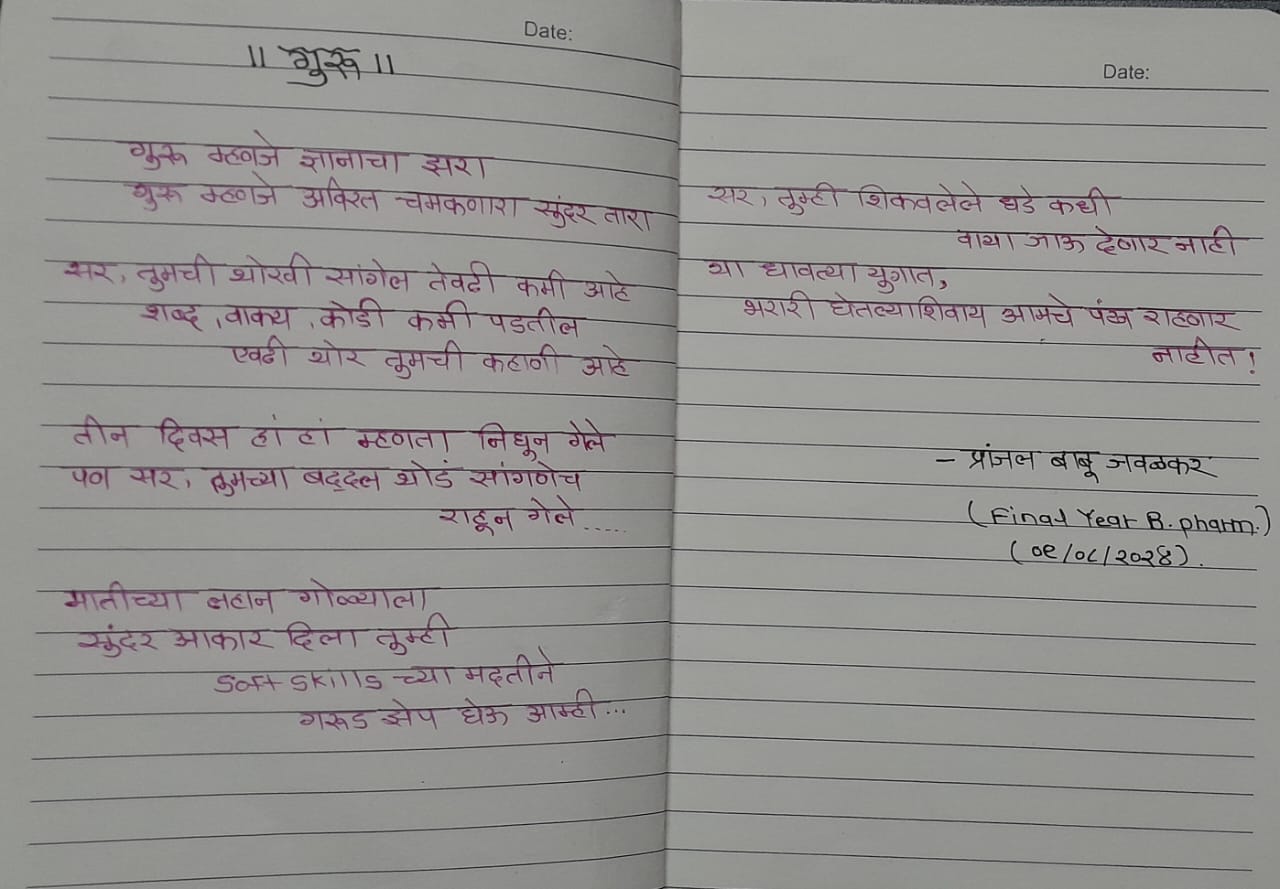 Date:
॥ गुरू ॥
गुरू म्हणजे ज्ञानाचा झरा
गुरू म्हणजे अविरत चमकणारा सुंदर तारा
सर, तुमची थोरवी सांगेल तेवढी कमी आहे
शब्द, वाक्य, कोडी कमी पडतील
एवढी थोर तुमची कहाणी आहे
तीन दिवस हां हां म्हणता निघून गेले
पण सर, तुमच्या बद्दल थोडं सांगणेच
राहून गेले.....
मातीच्या लहान गोळ्याला
सुंदर आकार दिला तुम्ही
soft skills च्या मदतीने
गरूड झेप घेऊ आम्ही...
Date:
सर, तुम्ही शिकवलेले धडे कधी
वाया जाऊ देणार नाही
या धावत्या युगात,
भरारी घेतल्याशिवाय आमचे पंख राहणार
नाहीत!
- प्रांजल बाबू जवळकर
(Final Year B. pharm.)
(०९/०८/२०२४).